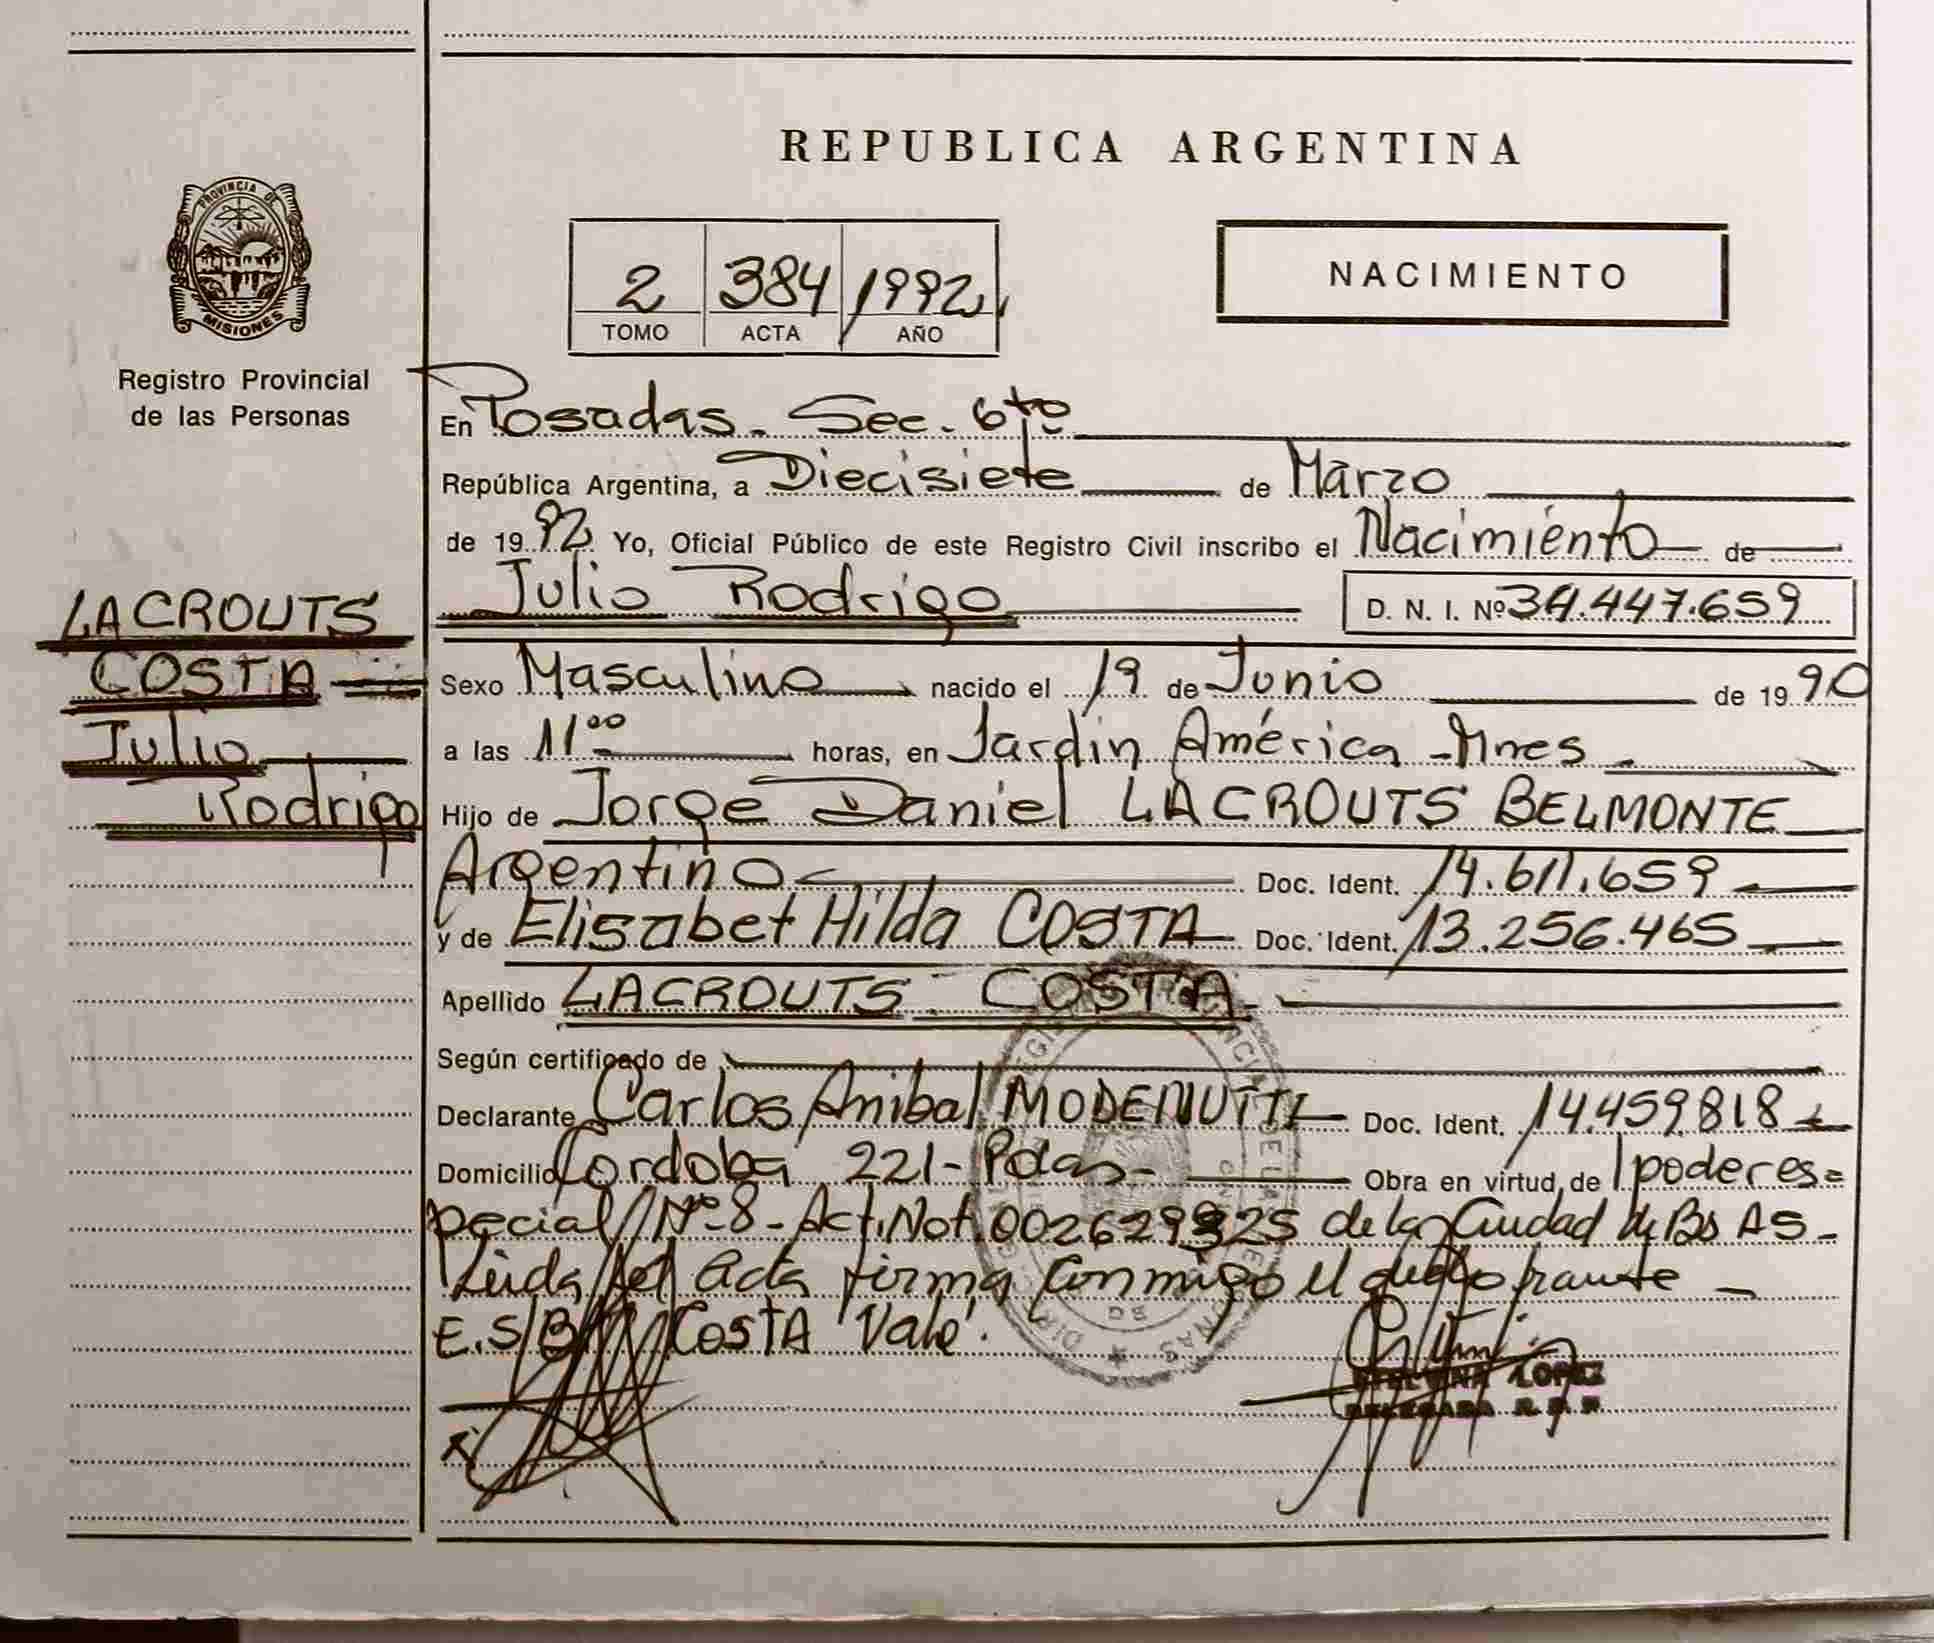 REPUBLICA ARGENTINA
PROVINCIA DE
MISIONES
Registro Provincial
de las Personas
2 384 1992
TOMO ACTA AÑO
NACIMIENTO
En Posadas - Sec. 6to
República Argentina, a Diecisiete de Marzo
de 1992 Yo, Oficial Público de este Registro Civil inscribo el Nacimiento de
Julio Rodrigo D. N. I. Nº 34.447.659
LACROUTS
COSTA
Julio
Rodrigo
Sexo Masculino nacido el 19 de Junio de 1990
a las 11 00 horas, en Jardin América - Mnes -
Hijo de Jorge Daniel LACROUTS BELMONTE
Argentino Doc. Ident. 14.611.659
y de Elisabet Hilda COSTA Doc. Ident. 13.256.465
Apellido LACROUTS COSTA
Según certificado de
Declarante Carlos Anibal MODENUTTI Doc. Ident. 14.459.818
Domicilio Cordoba 221 - Pdas - Obra en virtud de poder es=
pecial Nº 8 - Act. Not. de la Ciudad de Bs AS -
Leida el Acta firma conmigo el
E. S/B COSTA "Vale".
LOPEZ
DELEGADA R. P. P.